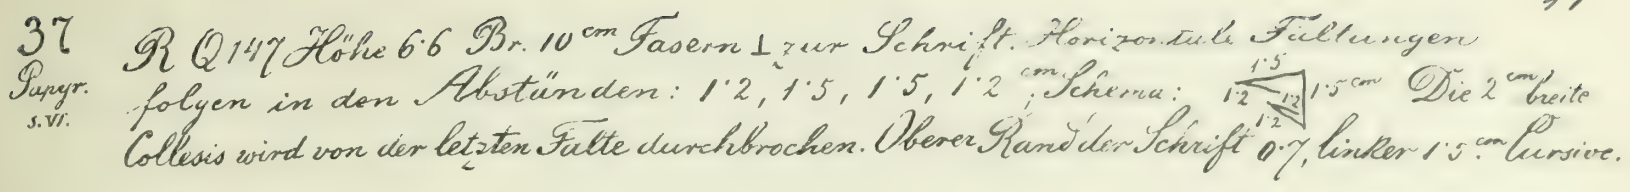 37 R Q 147 Höhe 6·6 Br. 10 cm Fasern ⊥ zur Schrift. Horizontale Faltungen
Papyr. folgen in den Abständen: 1·2, 1·5, 1·5, 1·2 cm; Schema: 1·5 1·2 1·2 1·2 1·5 cm Die 2 cm breite
s. VI. Collesis wird von der letzten Falte durchbrochen. Oberer Rand der Schrift 0·7, linker 1·5 cm Cursive.